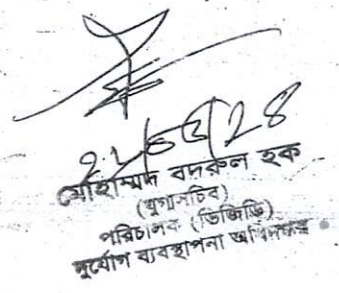 মোহাম্মদ বদরুল হক
(যুগ্মসচিব)
পরিচালক (ভিজিডি)
দুর্যোগ ব্যবস্থাপনা অধিদপ্তর